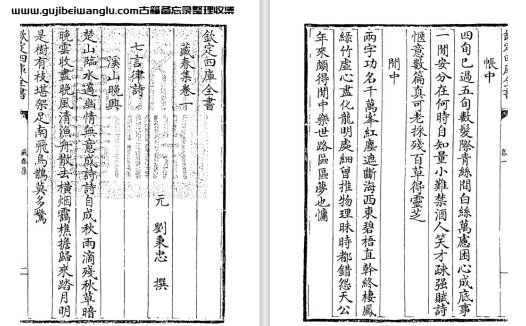 www.gujibeiwanglu.com古籍备忘录整理收集
欽定四庫全書
藏春集卷一
元 劉秉忠 撰
七言律詩
溪山晚興
楚山臨水適幽情無意成詩詩自成秋雨滴殘秋草暗
晚雲收盡晚風清漁舟散去橫烟靄樵擔歸來踏月明
是樹有枝堪架足南飛烏鵲莫多驚
欽定四庫全書
藏春集
帳中
四旬巳過五旬數鬢際青絲間白絲萬慮困心成底事
一閒安分在何時自知量小難禁酒人笑才疎强賦詩
愜意數篇真可老採殘百草得靈芝
閒中
兩字功名千萬岑紅塵遮斷海西東碧梧直幹終棲鳳
綠竹虛心盡化龍明處細曾推物理昧時都錯怨天公
年來頗得閒中樂世路區區夢也慵